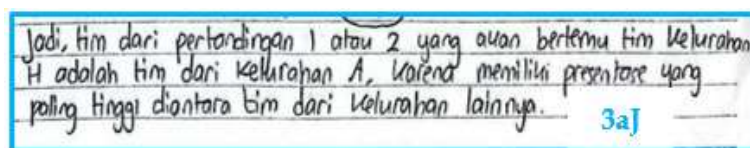 Jadi, tim dari pertandingan 1 atau 2 yang akan bertemu tim kelurahan
H adalah tim dari kelurahan A, karena memiliki presentase yang
paling tinggi diantara tim dari kelurahan lainnya.
3aJ